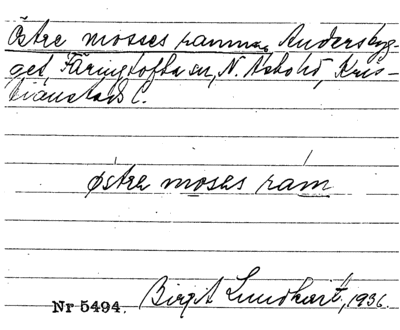 Östre mosses ramma, Andersbyg-
get, Färingtofta sn, N. Åsbo hd, Kris-
tianstads l.
östre moses rám
Nr 5494. Birgit Lundkvist, 1936.